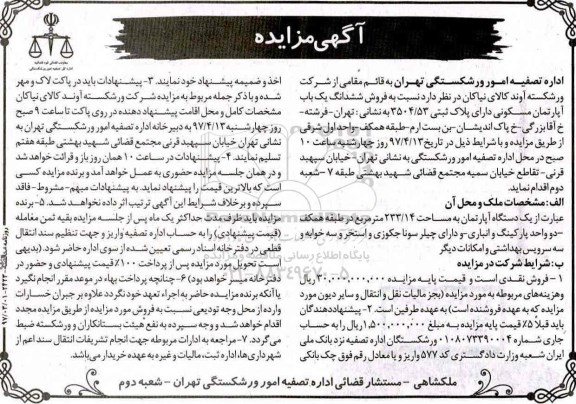 آگهی مزایده
اداره تصفیه امور ورشکستگی تهران به قائم مقامی از شرکت
ورشکسته آوند کالای نیاکان در نظر دارد نسبت به فروش ششدانگ یک باب
آپارتمان مسکونی دارای پلاک ثبتی ۳۵۰۴/۵۳ به نشانی: تهران-فرشته-
خ آقابزرگی-خ پاک اندیشان-بن بست ارم-طبقه همکف-واحد اول شرقی
از طریق مزایده و با شرایط ذیل در تاریخ ۹۷/۴/۱۳ روز چهارشنبه ساعت ۱۰
صبح در محل اداره تصفیه امور ورشکستگی به نشانی تهران-خیابان سپهبد
قرنی-تقاطع خیابان سمیه مجتمع قضائی شهید بهشتی طبقه ۷-شعبه
دوم اقدام نماید.
الف: مشخصات ملک و محل آن
عبارت از یک دستگاه آپارتمان به مساحت ۲۳۳/۱۴ مترمربع در طبقه همکف
-دو واحد پارکینگ و انباری-و دارای چیلر سونا جکوزی و استخر و سه خوابه و
سه سرویس بهداشتی و امکانات دیگر
ب: شرایط شرکت در مزایده
۱-فروش نقدی است و قیمت پایه مزایده ۳۰،۰۰۰،۰۰۰،۰۰۰ ریال
و هزینه‌های مربوطه به مورد مزایده (بجز مالیات نقل و انتقال و سایر دیون مورد
مزایده که به عهده فروشنده است) به عهده طرفین است. ۲-پیشنهاددهندگان
باید قبلا ۵٪ قیمت پایه مزایده به مبلغ ۱،۵۰۰،۰۰۰،۰۰۰ ریال را به حساب
جاری شماره ۰۱۰۸۰۷۳۳۹۰۰۰۴ ورشکستگان اداره تصفیه نزد بانک ملی
ایران شعبه وزارت دادگستری کد ۵۷۷ واریز و یا معادل رقم فوق چک بانکی
اخذ و ضمیمه پیشنهاد خود نمایند. ۳-پیشنهادات باید در پاکت لاک و مهر
شده و با ذکر جمله مربوط به مزایده شرکت ورشکسته آوند کالای نیاکان
مشخصات کامل و محل اقامت پیشنهاد دهنده در روی پاکت تا ساعت ۹ صبح
روز چهارشنبه ۹۷/۴/۱۳ به دبیرخانه اداره تصفیه امور ورشکستگی تهران به
نشانی تهران خیابان سپهبد قرنی مجتمع قضائی شهید بهشتی طبقه هفتم
تسلیم نمایند. ۴-پیشنهادات در ساعت ۱۰ همان روز باز و قرائت خواهد شد
و در همان جلسه مزایده حضوری به عمل خواهد آمد و برنده مزایده کسی
است که بالاترین قیمت را پیشنهاد نماید. به پیشنهادات مبهم-مشروط-فاقد
سپرده و برخلاف شرایط این آگهی ترتیب اثر داده نخواهد شد. ۵-برنده
مزایده باید ظرف مدت حداکثر یک ماه پس از جلسه مزایده بقیه ثمن معامله
(قیمت پیشنهادی) را به حساب اداره تصفیه واریز و جهت تنظیم سند انتقال
قطعی در دفترخانه اسناد رسمی تعیین شده از سوی اداره حاضر شود. (بدیهی
است تحویل مورد مزایده پس از پرداخت ۱۰۰٪ قیمت پیشنهادی و حضور در
دفترخانه انجام خواهد شد) ۶-چنانچه پرداخت بهاء در موعد مقرر انجام نگیرد
یا آنکه برنده مزایده حاضر به اجراء تعهد خود نگردد علاوه بر جبران خسارات
وارده از محل وجه تودیعی نسبت به فروش مورد مزایده از طریق مزایده مجدد
اقدام خواهد شد و وجه سپرده به نفع هیئت بستانکاران ورشکسته ضبط
می گردد. ۷-مراجعه به ادارات مربوطه جهت انجام تشریفات انتقال سند اعم از
شهرداری‌ها، اداره ثبت، مالیات و غیره به عهده خریدار می‌باشد.
ملکشاهی - مستشار قضائی اداره تصفیه امور ورشکستگی تهران - شعبه دوم